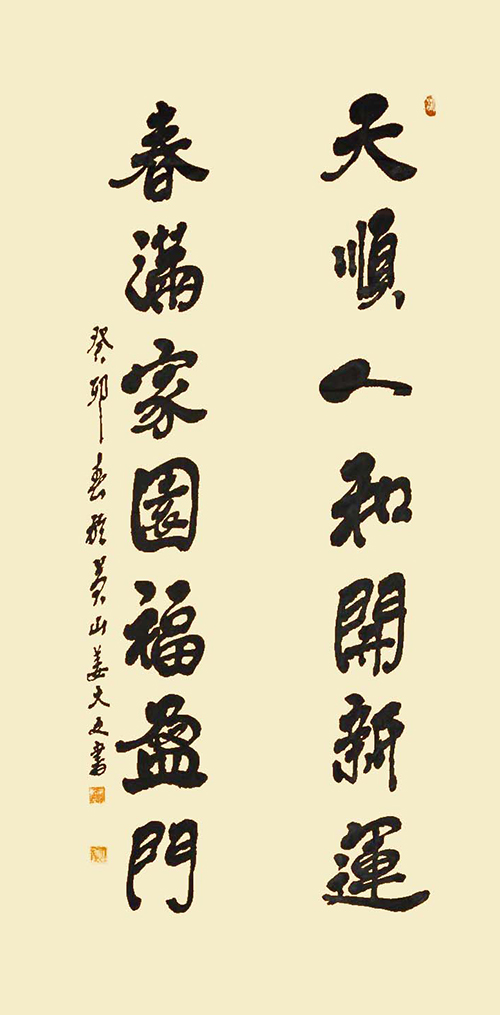 天順人和開新運
春滿家園福盈門
癸卯春於黄山姜大文書